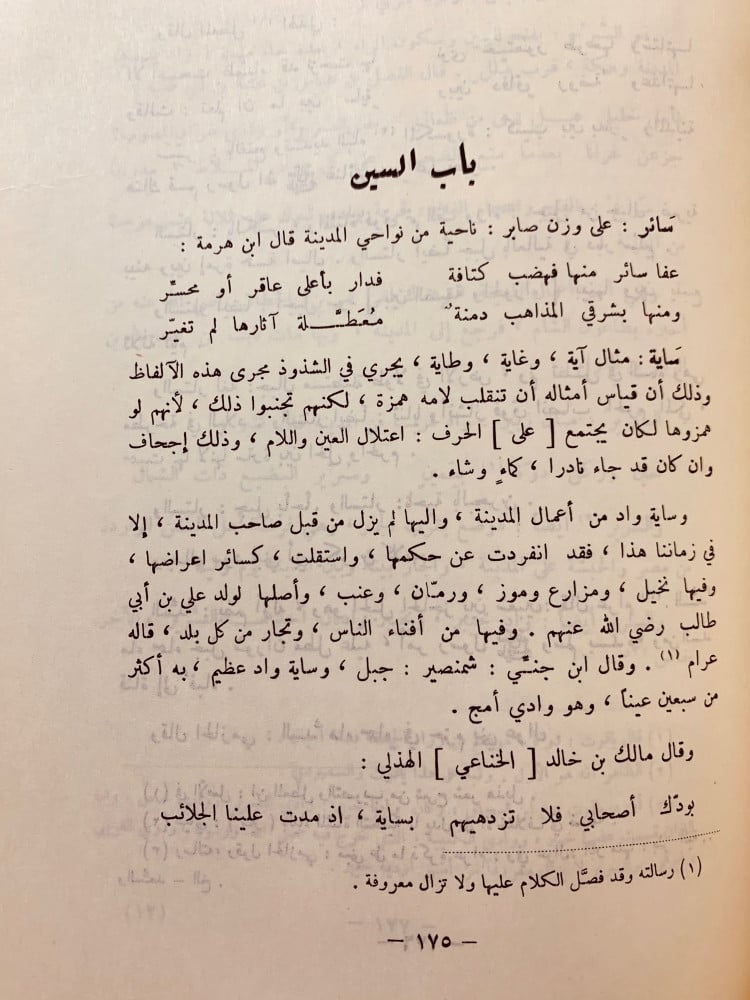 باب السين
سَائر : على وزن صابر : ناحية من نواحي المدينة قال ابن هرمة :
عفا سائر منها فهضب كتافة فدار بأعلى عاقر أو محسِّر
ومنها بشرقي المذاهب دمنةٌ مُعَطَّلة آثارها لم تغيّر
سَاية : مثال آية ، وغاية ، وطاية ، يجري في الشذوذ مجرى هذه الآلفاظ
وذلك أن قياس أمثاله أن تنقلب لامه همزة ، لكنهم تجنبوا ذلك ، لأنهم لو
همزوها لكان يجتمع [ على ] الحرف : اعتلال العين واللام ، وذلك إجحاف
وان كان قد جاء نادرا ، كماءٍ وشاء .
وساية واد من أعمال المدينة ، واليها لم يزل من قبل صاحب المدينة ، إلا
في زماننا هذا ، فقد انفردت عن حكمها ، واستقلت ، كسائر اعراضها ،
وفيها نخيل ، ومزارع وموز ، ورمّان ، وعنب ، وأصلها لولد علي بن أبي
طالب رضي الله عنهم . وفيها من أفناء الناس ، وتجار من كل بلد ، قاله
عرام (١) . وقال ابن جنّي : شمنصير : جبل ، وساية واد عظيم ، به أكثر
من سبعين عيناً ، وهو وادي أمج .
وقال مالك بن خالد [ الخناعي ] الهذلي :
بودّك أصحابي فلا تزدهيهم بساية ، اذ مدت علينا الجلائب
(١) رسالته وقد فصَّل الكلام عليها ولا تزال معروفة .
— ١٧٥ —